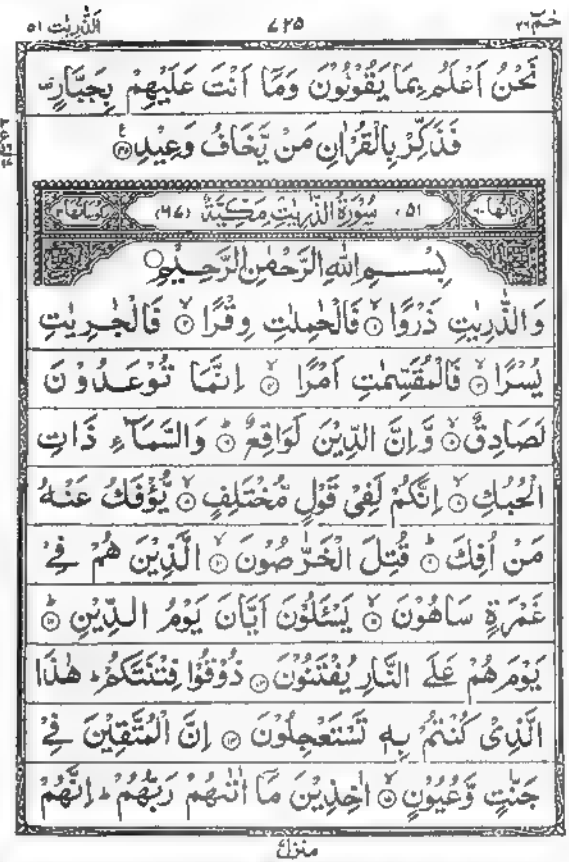 حٰمٓ ۲۶ ۷۲۵ الذّٰرِیٰت ۵۱
نَحْنُ اَعْلَمُ بِمَا یَقُوْلُوْنَ وَمَاۤ اَنْتَ عَلَیْهِمْ بِجَبَّارٍ
فَذَكِّرْ بِالْقُرْاٰنِ مَنْ یَّخَافُ وَعِیْدِ ۟
اٰیَاتُهَا ۶۰ (۵۱) سُوْرَةُ الذّٰرِیٰتِ مَكِّیَّةٌ (۶۷) رُكُوْعَاتُهَا ۳
بِسْمِ اللّٰهِ الرَّحْمٰنِ الرَّحِیْمِ
وَالذّٰرِیٰتِ ذَرْوًا ۙ۱ فَالْحٰمِلٰتِ وِقْرًا ۙ۲ فَالْجٰرِیٰتِ
یُسْرًا ۙ۳ فَالْمُقَسِّمٰتِ اَمْرًا ۙ۴ اِنَّمَا تُوْعَدُوْنَ
لَصَادِقٌ ۙ۵ وَّاِنَّ الدِّیْنَ لَوَاقِعٌ ؕ۶ وَالسَّمَآءِ ذَاتِ
الْحُبُكِ ۙ۷ اِنَّكُمْ لَفِیْ قَوْلٍ مُّخْتَلِفٍ ۙ۸ یُّؤْفَكُ عَنْهُ
مَنْ اُفِكَ ؕ۹ قُتِلَ الْخَرّٰصُوْنَ ۙ۱۰ الَّذِیْنَ هُمْ فِیْ
غَمْرَةٍ سَاهُوْنَ ۙ۱۱ یَسْـَٔلُوْنَ اَیَّانَ یَوْمُ الدِّیْنِ ؕ۱۲
یَوْمَ هُمْ عَلَی النَّارِ یُفْتَنُوْنَ ۱۳ ذُوْقُوْا فِتْنَتَكُمْ ؕ هٰذَا
الَّذِیْ كُنْتُمْ بِهٖ تَسْتَعْجِلُوْنَ ۱۴ اِنَّ الْمُتَّقِیْنَ فِیْ
جَنّٰتٍ وَّعُیُوْنٍ ۙ۱۵ اٰخِذِیْنَ مَاۤ اٰتٰىهُمْ رَبُّهُمْ ؕ اِنَّهُمْ
منزل